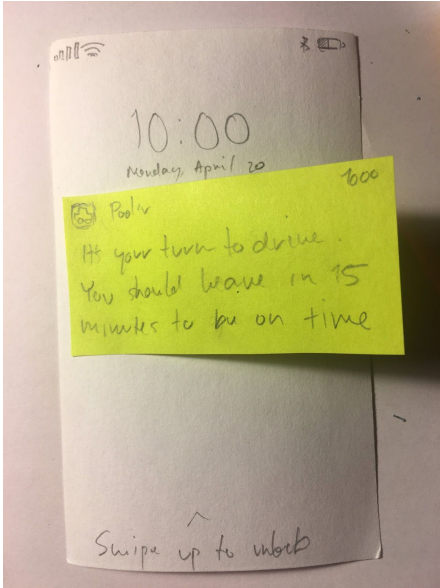 10:00
Monday, April 20
1000
Pool'r
It's your turn to drive.
You should leave in 15
minutes to be on time
Swipe up to unlock